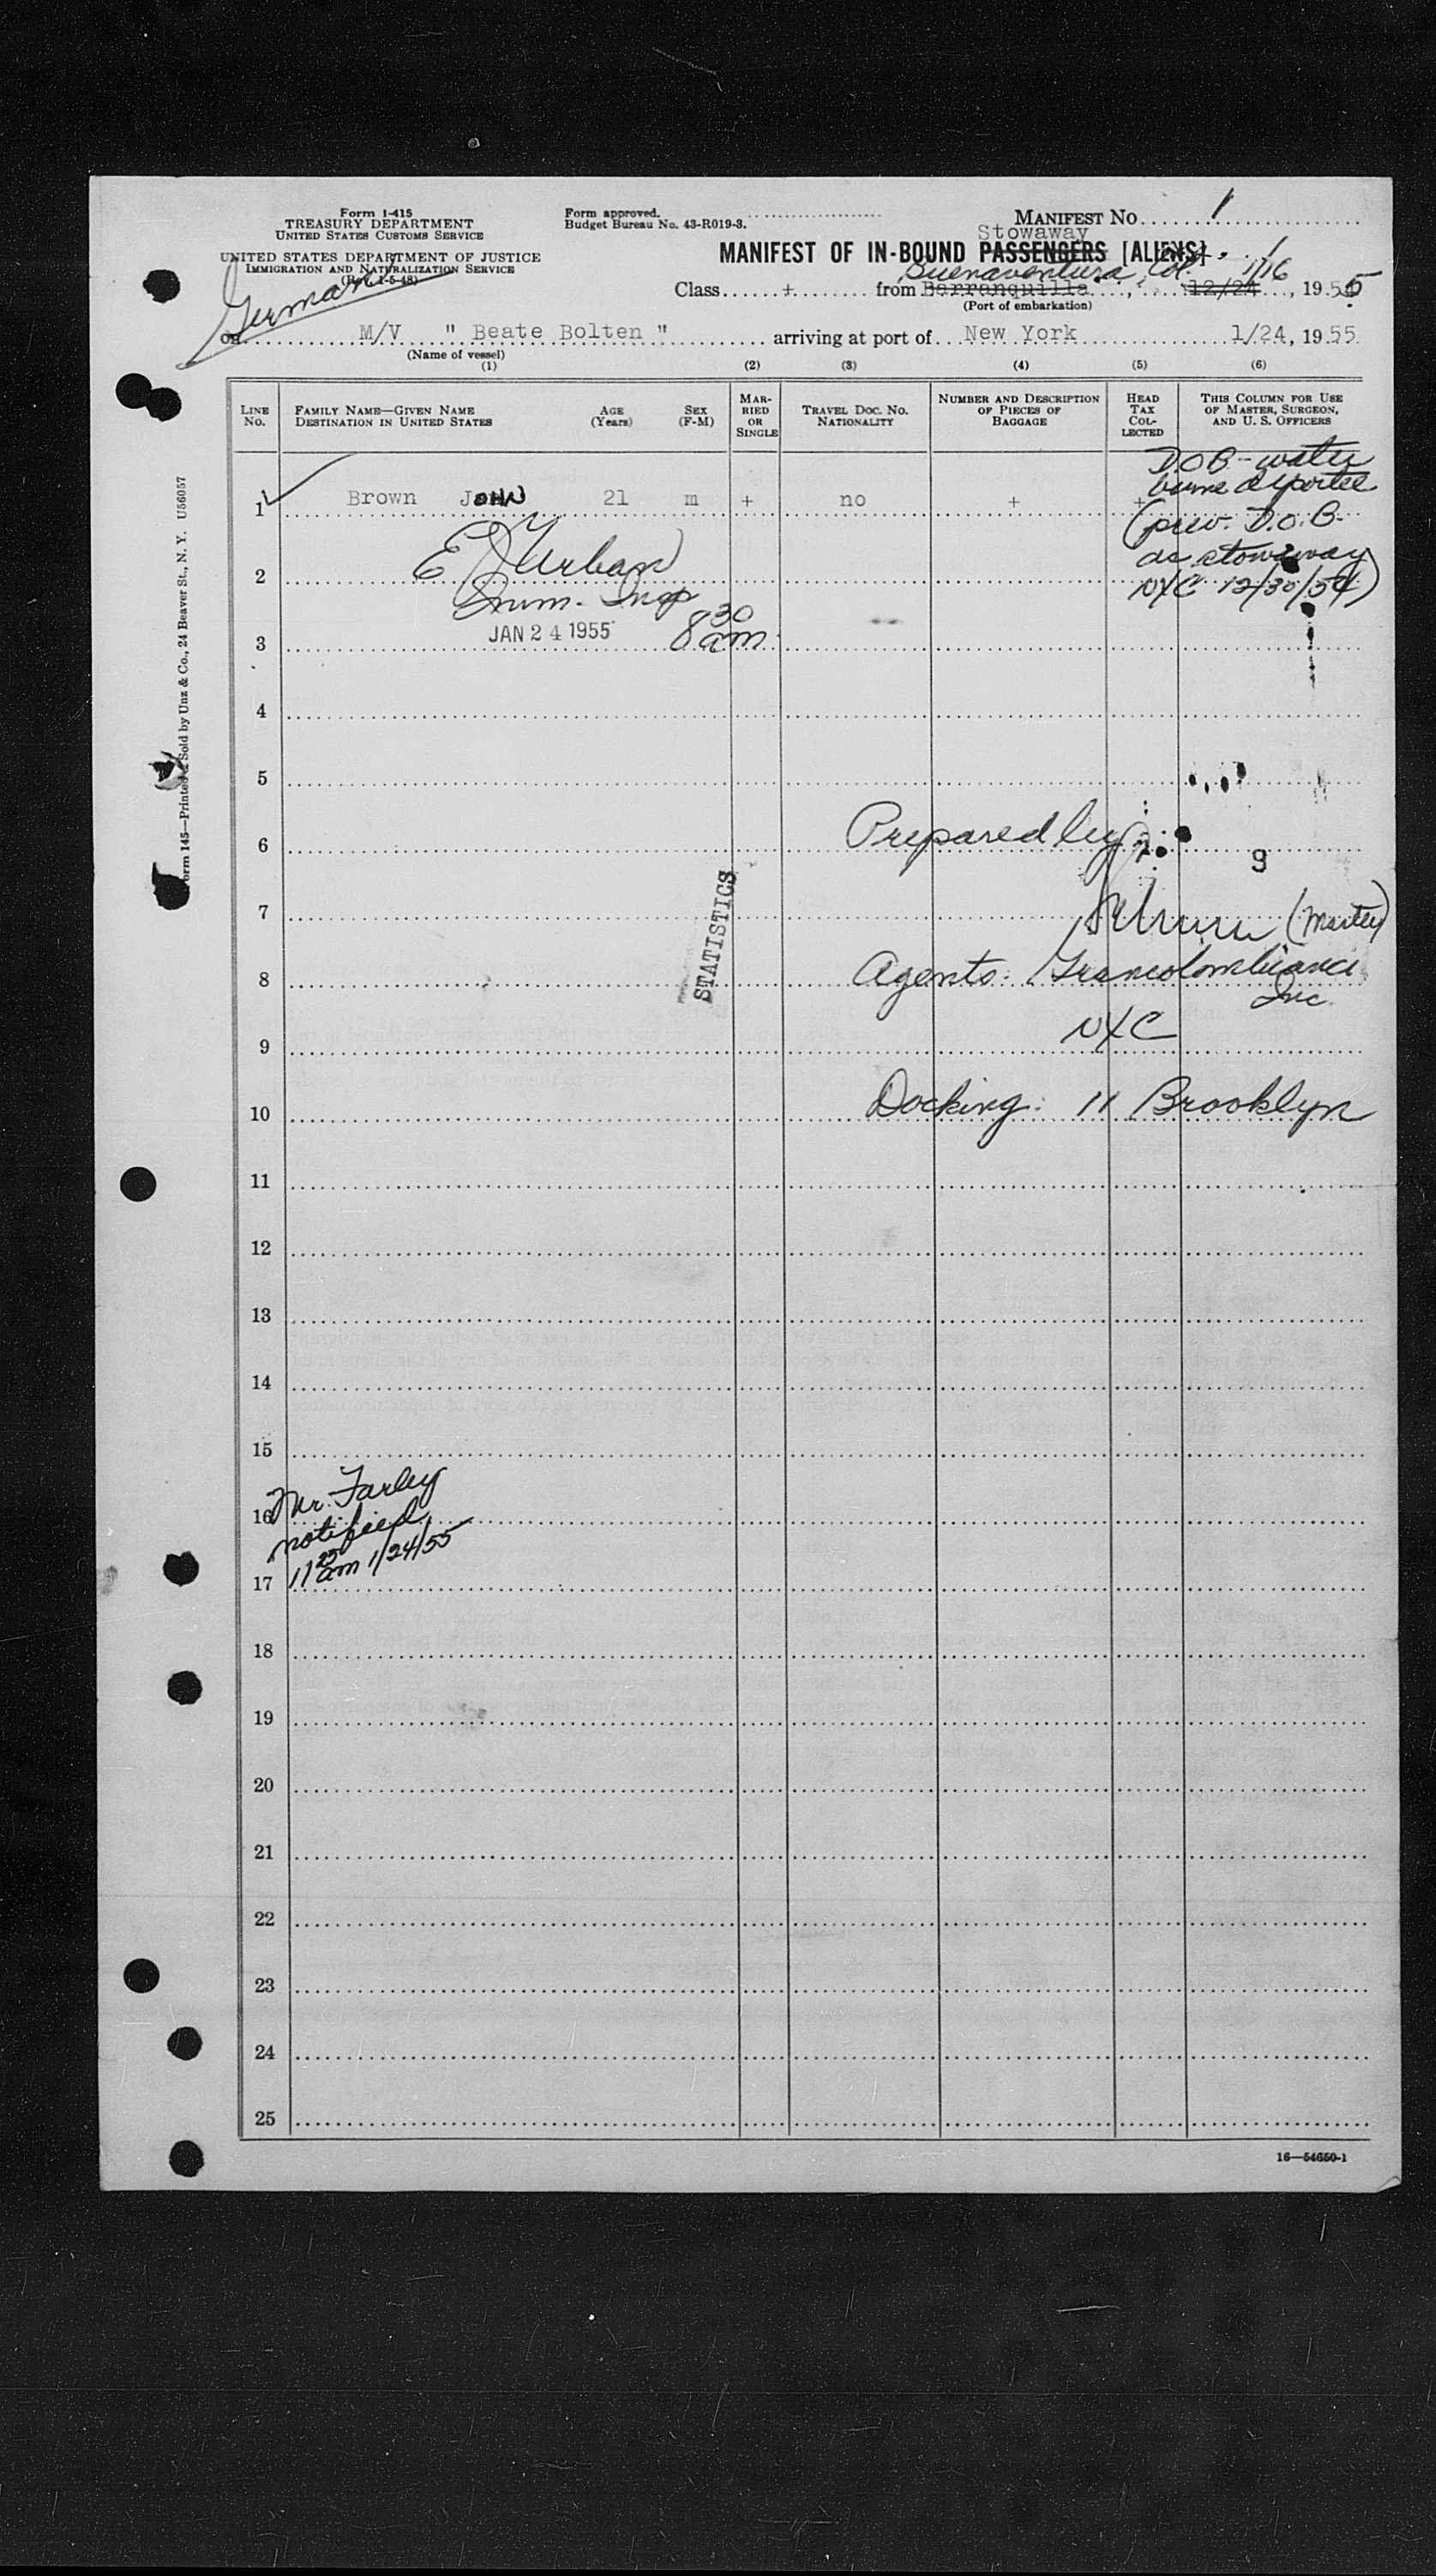 Form I-415
TREASURY DEPARTMENT
UNITED STATES CUSTOMS SERVICE
UNITED STATES DEPARTMENT OF JUSTICE
IMMIGRATION AND NATURALIZATION SERVICE
(Rev. 1-5-48)
German
Form approved.
Budget Bureau No. 43-R019-3.
MANIFEST NO. 1
Stowaway
MANIFEST OF IN-BOUND PASSENGERS [ALIENS]
Buenaventura, Col. 1/16
Class + from Barranquilla, 12/24, 1955
(Port of embarkation)
on M/V " Beate Bolten " arriving at port of New York 1/24, 1955
(Name of vessel)
(1) (2) (3) (4) (5) (6)
LINE NO.
FAMILY NAME—GIVEN NAME
DESTINATION IN UNITED STATES
AGE (Years)
SEX (F-M)
MARRIED OR SINGLE
TRAVEL DOC. NO.
NATIONALITY
NUMBER AND DESCRIPTION OF PIECES OF BAGGAGE
HEAD TAX COLLECTED
THIS COLUMN FOR USE OF MASTER, SURGEON, AND U. S. OFFICERS
1 Brown John 21 m + no + +
DOB - water
borne deportee
(prev. D.O.B.
as stowaway
NYC 12/30/54)
2 E Urban
Imm. Insp
3 JAN 24 1955 8 30 am
4
5
6 Prepared by: 9
7 (Master)
8 Agents: Grancolombiana
Inc.
9 NYC
10 Docking: 11 Brooklyn
STATISTICS
11
12
13
14
15
16 Mr. Farley
notified
17 11 25 am 1/24/55
18
19
20
21
22
23
24
25
16—54650-1
Form 145—Printed & Sold by Unz & Co., 24 Beaver St., N. Y. U56057